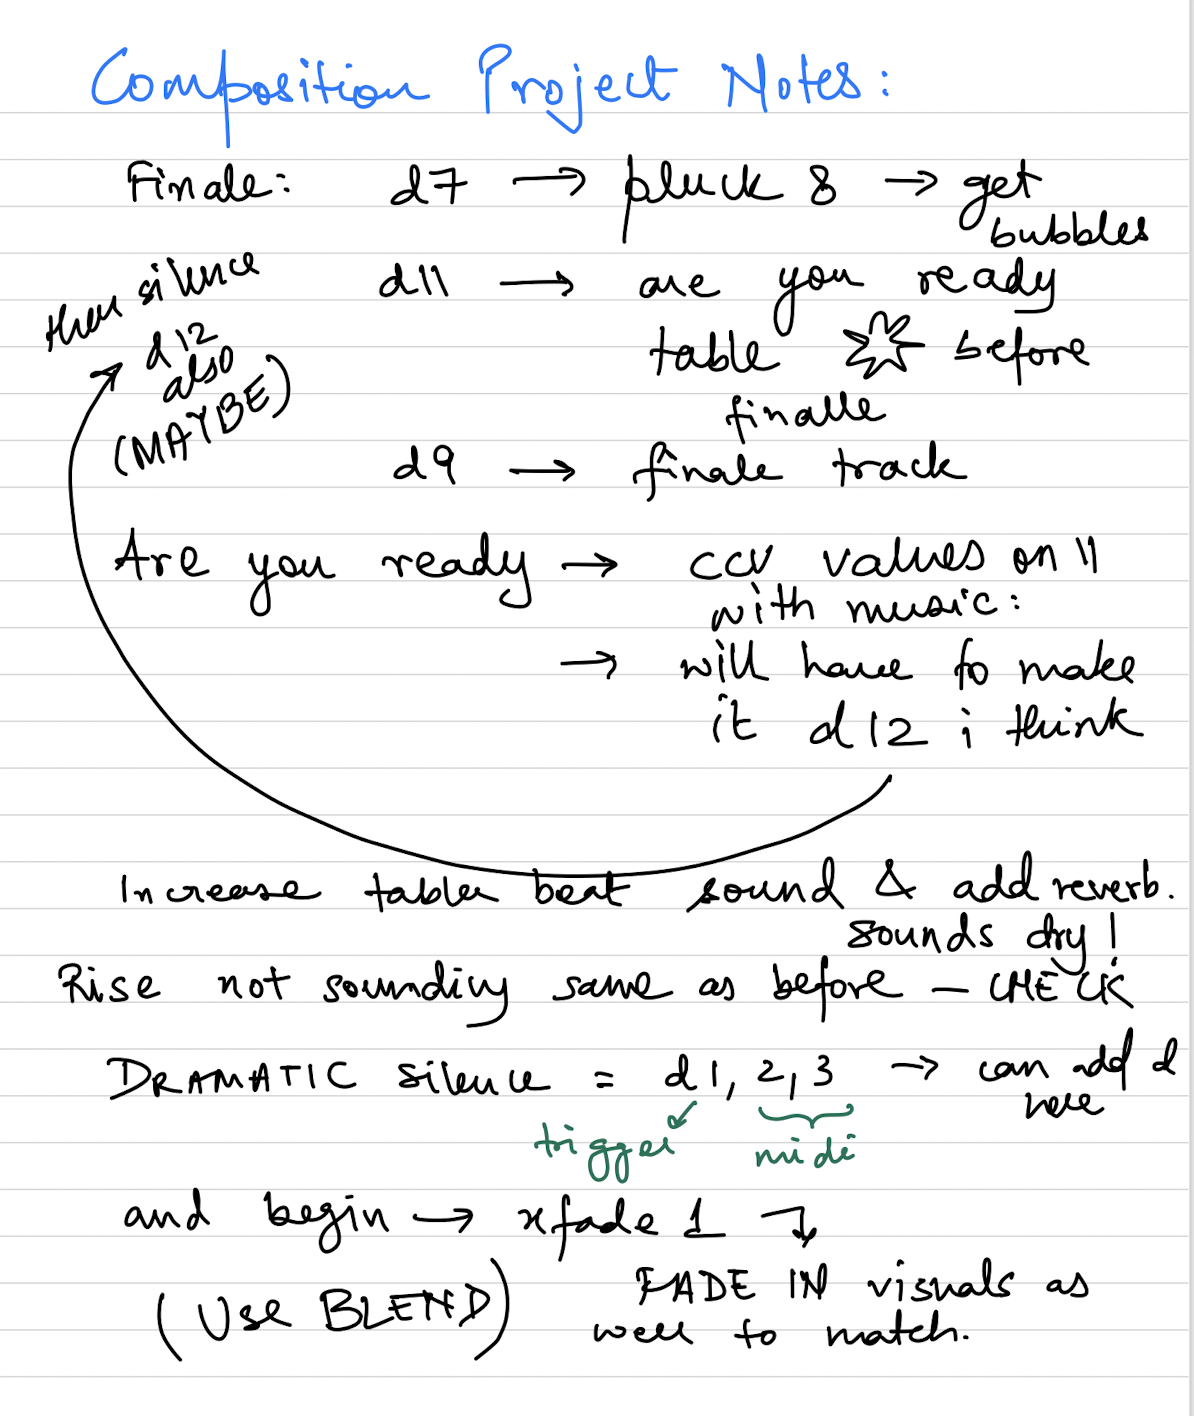 Composition Project Notes:
Finale: d7 → pluck 8 → get
bubbles
then silence
d12
also
(MAYBE)
d11 → are you ready
table before
finalle
d9 → finale track
Are you ready → ccv values on 11
with music:
→ will have to make
it d12 i think
Increase tabla beat sound & add reverb.
sounds dry!
Rise not sounding same as before – CHECK
DRAMATIC silence = d1, 2, 3 → can add d
here
trigger midi
and begin → xfade 1
(Use BLEND) FADE IN visuals as
well to match.